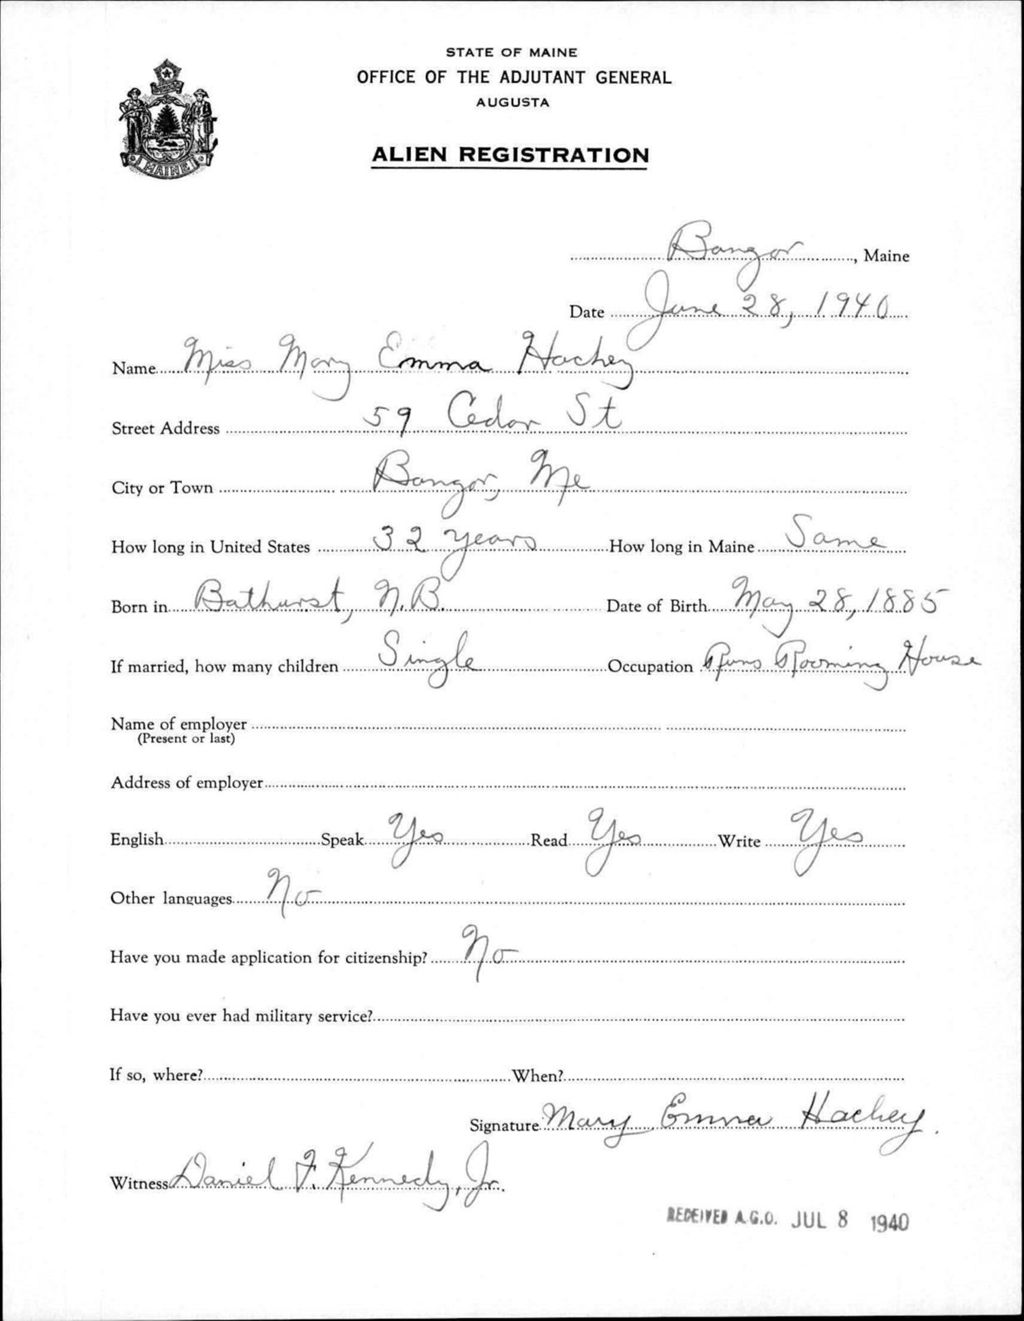 STATE OF MAINE
OFFICE OF THE ADJUTANT GENERAL
AUGUSTA
ALIEN REGISTRATION
MAINE
Bangor, Maine
Date June 28, 1940
Name Miss Mary Emma Hachey
Street Address 59 Cedar St
City or Town Bangor, Me
How long in United States 32 years How long in Maine Same
Born in Bathurst, N.B. Date of Birth May 28, 1885
If married, how many children Single Occupation Runs Rooming House
Name of employer
(Present or last)
Address of employer
English Speak Yes Read Yes Write Yes
Other languages No
Have you made application for citizenship? No
Have you ever had military service?
If so, where? When?
Signature Mary Emma Hachey.
Witness Daniel F. Kennedy, Jr.
RECEIVED A.G.O. JUL 8 1940